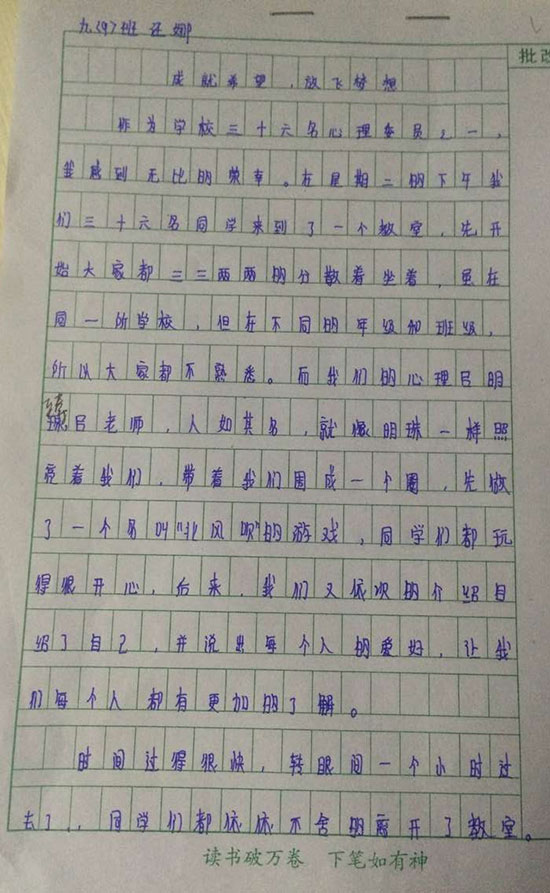 九(9)班 汪娜
批改
成就希望，放飞梦想
作为学校三十六名心理委员之一，
我感到无比的荣幸。在星期二的下午我
们三十六名同学来到了一个教室，先开
始大家都三三两两的分散着坐着，虽在
同一所学校，但在不同的年级和班级，
所以大家都不熟悉。而我们的心理吕明
珠吕老师，人如其名，就像明珠一样照
亮着我们，带着我们围成一个圈，先做
了一个名叫"北风吹"的游戏，同学们都玩
得很开心，后来，我们又依次的介绍自
绍了自己，并说出每个人的爱好，让我
们每个人都有更加的了解。
时间过得很快，转眼间一个小时过
去了，同学们都依依不舍的离开了教室。
读书破万卷 下笔如有神